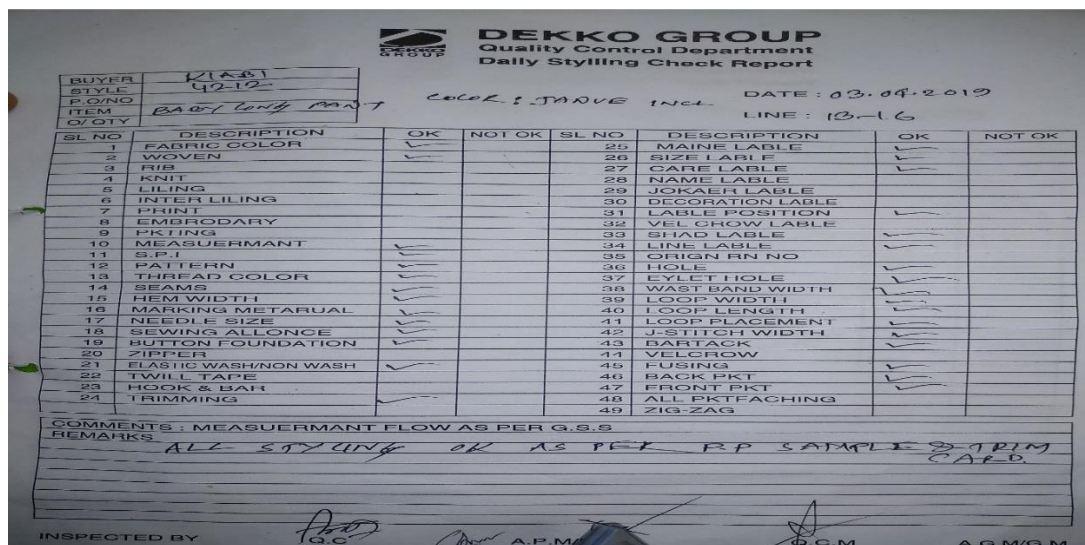 DEKKO GROUP
DEKKO
GROUP
Quality Control Department
Daily Stylling Check Report
BUYER KIABI
STYLE 4212
P.O/NO
ITEM BABY LONG PANT
O/ QTY
COLOR :
DATE : 03.09.2019
LINE :
SL NO DESCRIPTION OK NOT OK SL NO DESCRIPTION OK NOT OK
1 FABRIC COLOR ✓ 25 MAINE LABLE ✓
2 WOVEN ✓ 26 SIZE LABLE ✓
3 RIB 27 CARE LABLE ✓
4 KNIT 28 NAME LABLE
5 LILING 29 JOKAER LABLE
6 INTER LILING 30 DECORATION LABLE
7 PRINT 31 LABLE POSITION ✓
8 EMBRODARY 32 VEL CROW LABLE
9 PKTING 33 SHAD LABLE ✓
10 MEASUERMANT ✓ 34 LINE LABLE ✓
11 S.P.I ✓ 35 ORIGN RN NO
12 PATTERN ✓ 36 HOLE ✓
13 THREAD COLOR ✓ 37 EYLET HOLE ✓
14 SEAMS ✓ 38 WAST BAND WIDTH ✓
15 HEM WIDTH ✓ 39 LOOP WIDTH ✓
16 MARKING METARUAL ✓ 40 LOOP LENGTH ✓
17 NEEDLE SIZE ✓ 41 LOOP PLACEMENT ✓
18 SEWING ALLONCE ✓ 42 J-STITCH WIDTH ✓
19 BUTTON FOUNDATION ✓ 43 BARTACK ✓
20 ZIPPER 44 VELCROW
21 ELASTIC WASH/NON WASH ✓ 45 FUSING ✓
22 TWILL TAPE 46 BACK PKT ✓
23 HOOK & BAR 47 FRONT PKT ✓
24 TRIMMING ✓ 48 ALL PKTFACHING
49 ZIG-ZAG
COMMENTS : MEASUERMANT FLOW AS PER G.S.S
REMARKS
ALL STYLING OK AS PER P.P SAMPLE & TRIM
CARD.
INSPECTED BY Q.C A.P.M Q.C.M A.G.M/G.M